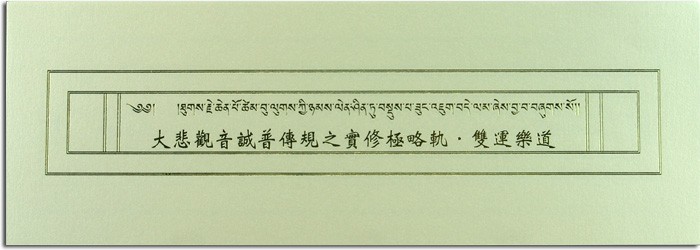 ༄༅། །ཐུགས་རྗེ་ཆེན་པོ་ཚེམ་བུ་ལུགས་ཀྱི་ཉམས་ལེན་ཤིན་ཏུ་བསྡུས་པ་ཟུང་འཇུག་བདེ་ལམ་ཞེས་བྱ་བ་བཞུགས་སོ།།
大悲觀音誠普傳規之實修極略軌．雙運樂道